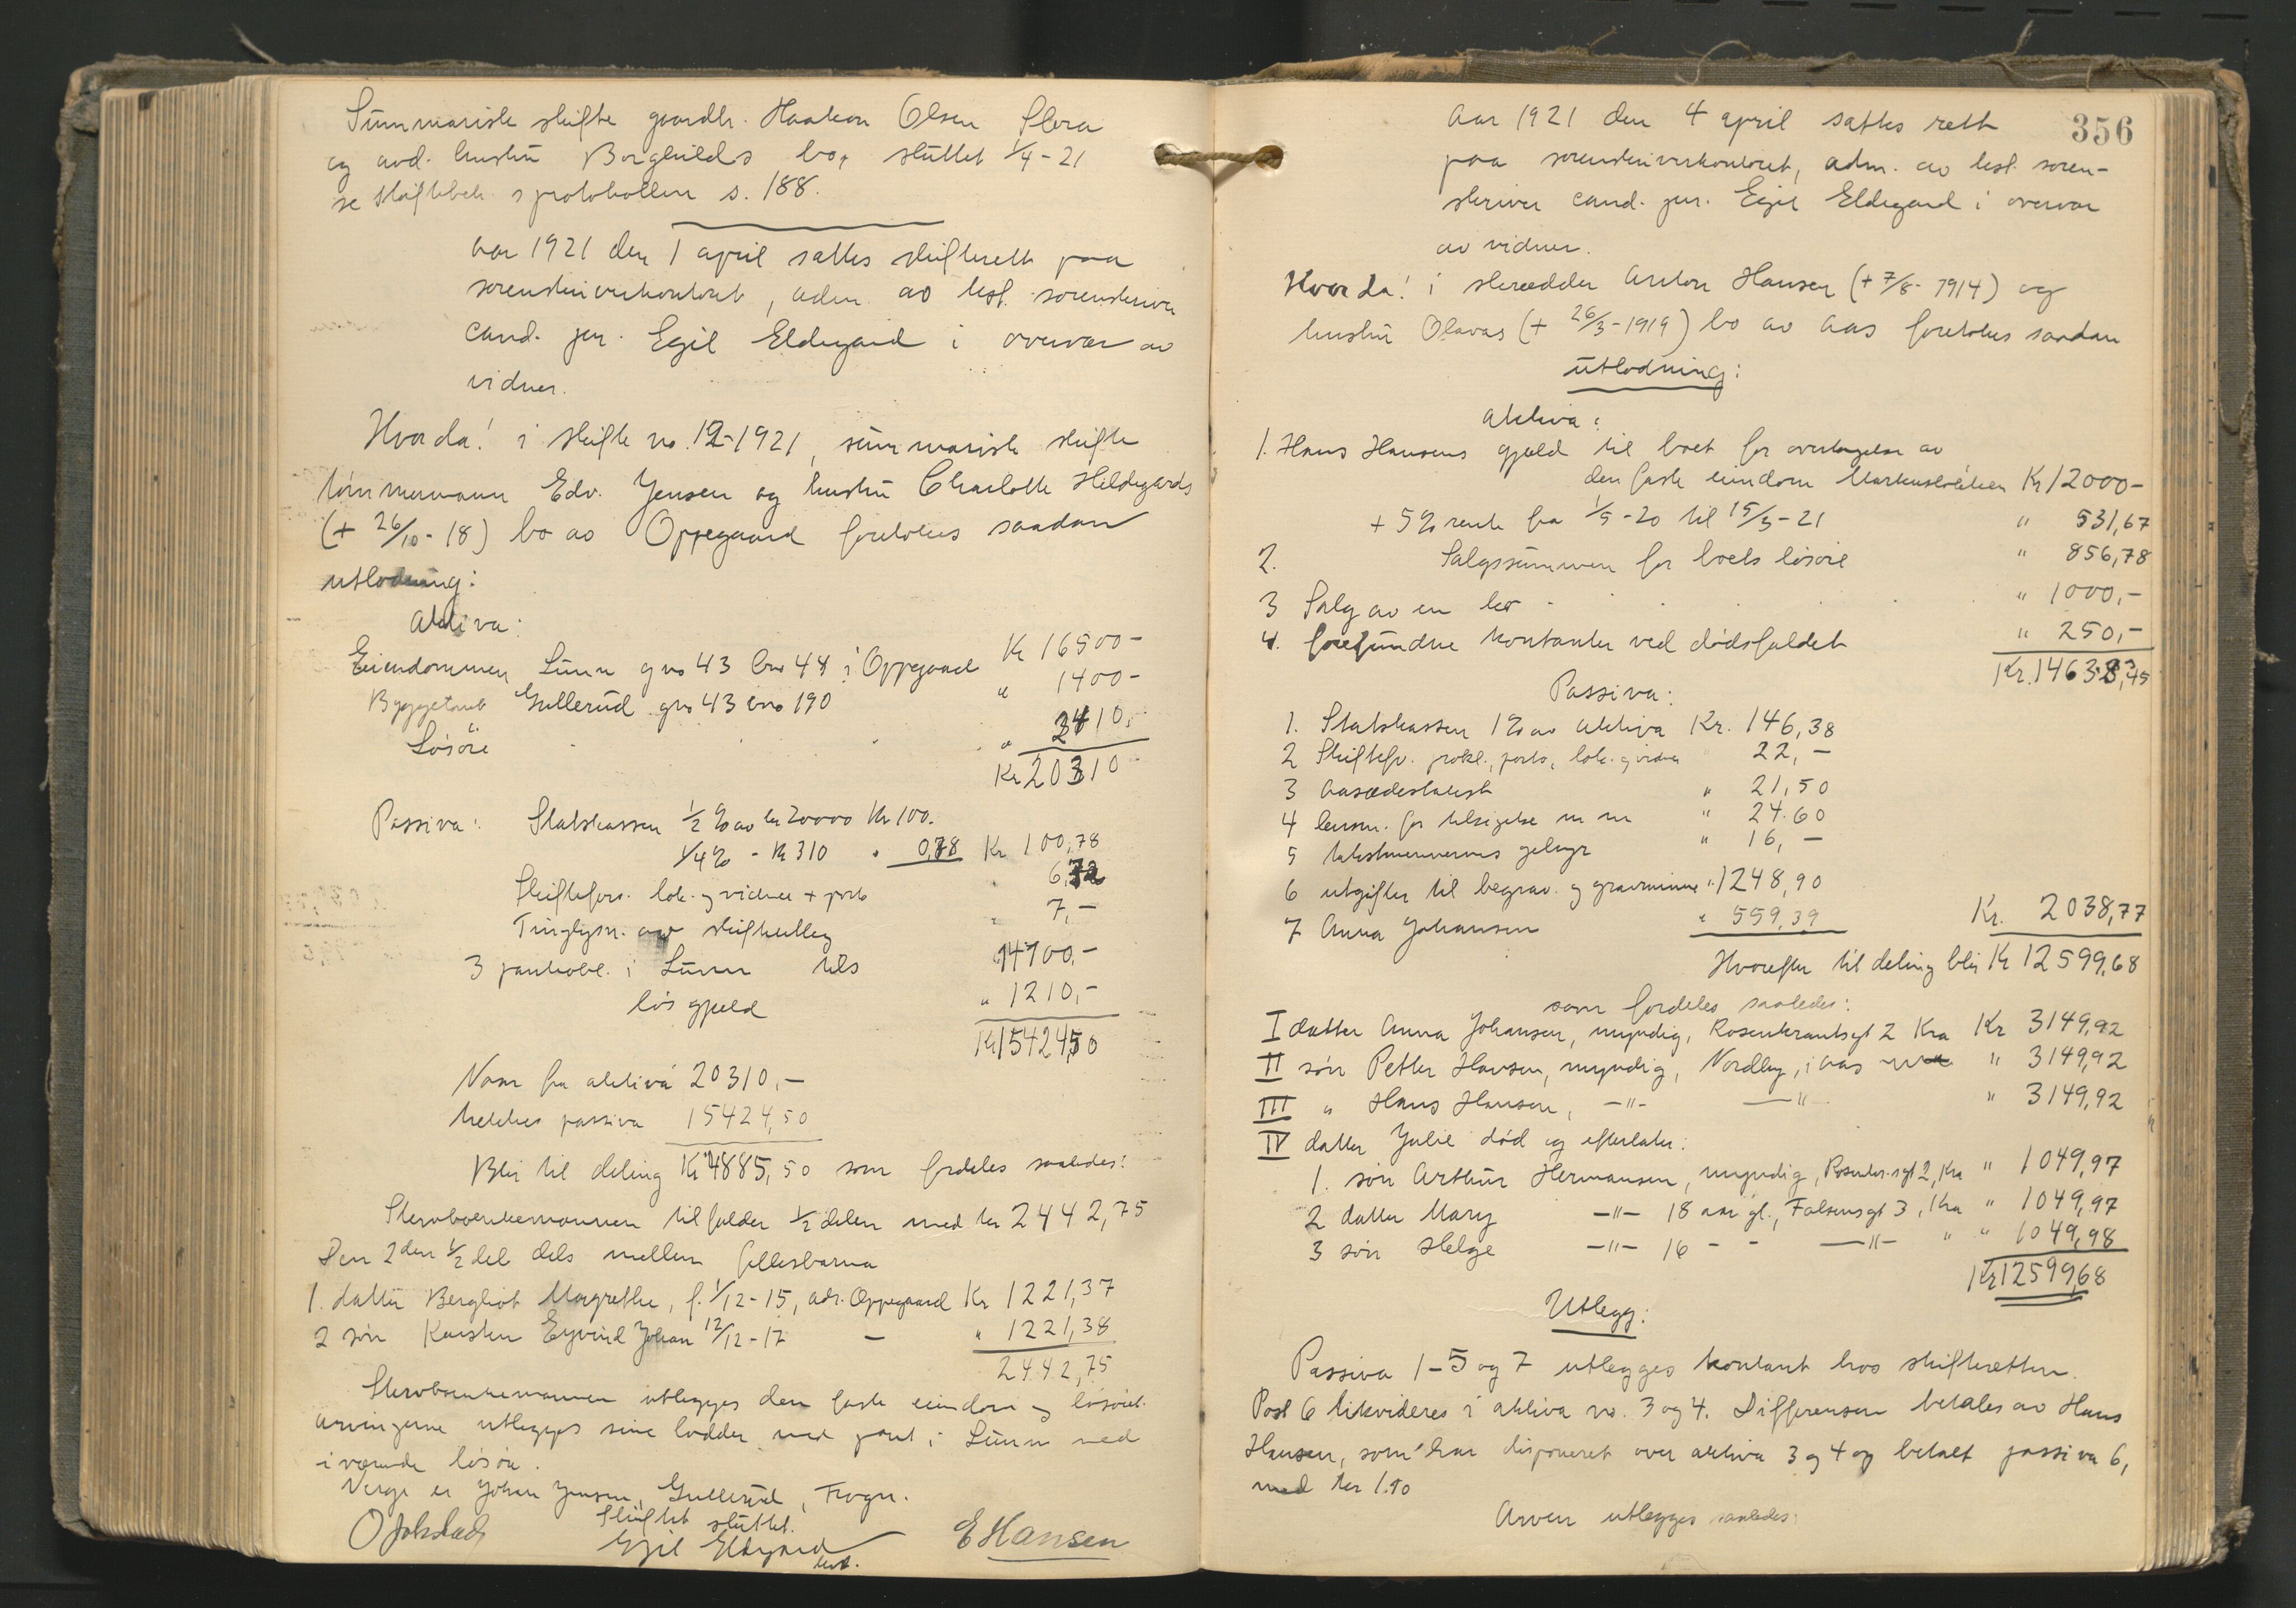 Summarisk skifte gaardbr. Haakon Olsen Flera
og avd. hustru Borghilds bo, sluttet 1/4-21
se skiftebeh. sprotokollen s. 188.
Aar 1921 den 1 april sattes skifterett paa
sorenskriverkontoret, adm. av kst. sorenskriver
cand. jur. Egil Eldegard i overvær av
vidner.
Hvorda! i skifte no. 12-1921, summarisk skifte
tømmermann Edv. Jensen og hustru Charlotte Hildegards
(+ 26/10-18) bo av Oppegaard foretokes saadan
utlodning:
Aktiva:
Eiendommen Lunn gno 43 bno 44 i Oppegaard Kr 16500-
Byggetomt Gullerud gno 43 bno 190 " 1400-
Løsøre " 2410,-
Kr 20310
Passiva: Statskassen 1/2 % av kr 20000 Kr 100.
1/4 % - Kr 310 " 0,78 Kr 100,78
Skifteforv. lok. og vidner + porto 6,72
Tinglysn. av skifteutlegg " 7,-
3 pantobl. i Lunn tils 14100,-
løs gjeld " 1210,-
Kr 15424,50
Naar fra aktiva 20310,-
trekkes passiva 15424,50
Blir til deling Kr 4885,50 som fordeles saaledes:
Stervboenkemannen tilfalder 1/2 delen med kr 2442,75
Den 2den 1/2 del dels mellem fellesbarna
1. datter Bergliot Margrethe, f. 1/12-15, adr. Oppegaard Kr 1221,37
2 søn Karsten Eyvind Johan 12/12-17 — " 1221,38
2442,75
Stervboenkemannen utlegges den faste eiendom og løsøret.
Arvingerne utlegges sine lodder med pant i Lunn med
iværende løsøre.
Verge er Johan Jensen, Gullerud, Frogn.
Skiftet sluttet.
O Jokstad Egil Eldegard E Hansen
kst.
356
Aar 1921 den 4 april sattes rett
paa sorenskriverkontoret, adm. av kst. soren-
skriver cand. jur. Egil Eldegard i overvær
av vidner.
Hvorda! i skrædder Anton Hansen (+ 7/8-1914) og
hustru Olavas (+ 26/3-1919) bo av Aas foretokes saadan
utlodning:
Aktiva:
1. Hans Hansens gjæld til boet for overtagelse av
den faste eiendom Markusløkken Kr 12000-
+ 5 % rente fra 1/5-20 til 15/3-21 " 531,67
2. Salgssummen for boets løsøre " 856,78
3 Salg av en ko - " 1000,-
4. forefundne kontanter ved dødsfaldet " 250,-
Kr. 14638,45
Passiva:
1. Statskassen 1% av aktiva Kr. 146,38
2 Skiftefv. prokl., porto, lok. og vidner " 22,-
3 Aasædestakst " 21,50
4 lensm. for tilsigelse m m " 24.60
5 takstmennernes gebyr " 16,-
6 utgifter til begrav. og gravminne " 1248,90
7 Anna Johansen " 559,39 Kr. 2038,77
Hvorefter til deling blir Kr 12599,68
som fordeles saaledes:
I datter Anna Johansen, myndig, Rosenkrantsgt 2 Kra Kr 3149,92
II søn Petter Hansen, myndig, Nordby, i Aas " 3149,92
III " Hans Hansen, -"- -"- " 3149,92
IV datter Julie død og efterlater:
1. søn Arthur Hermansen, myndig, Rosenkr.sgt 2, Kra " 1049,97
2 datter Mary -"- 18 aar gl., Falsensgt 3, Kra " 1049,97
3 søn Helge -"- 16 - - -"- " " 1049,98
Kr 12599,68
Utlegg:
Passiva 1-5 og 7 utlegges kontant hos skifteretten.
Post 6 likvideres i aktiva no. 3 og 4. Differensen betales av Hans
Hansen, som har disponeret over aktiva 3 og 4 og betalt passiva 6,
med kr 1.10
Arven utlegges saaledes: